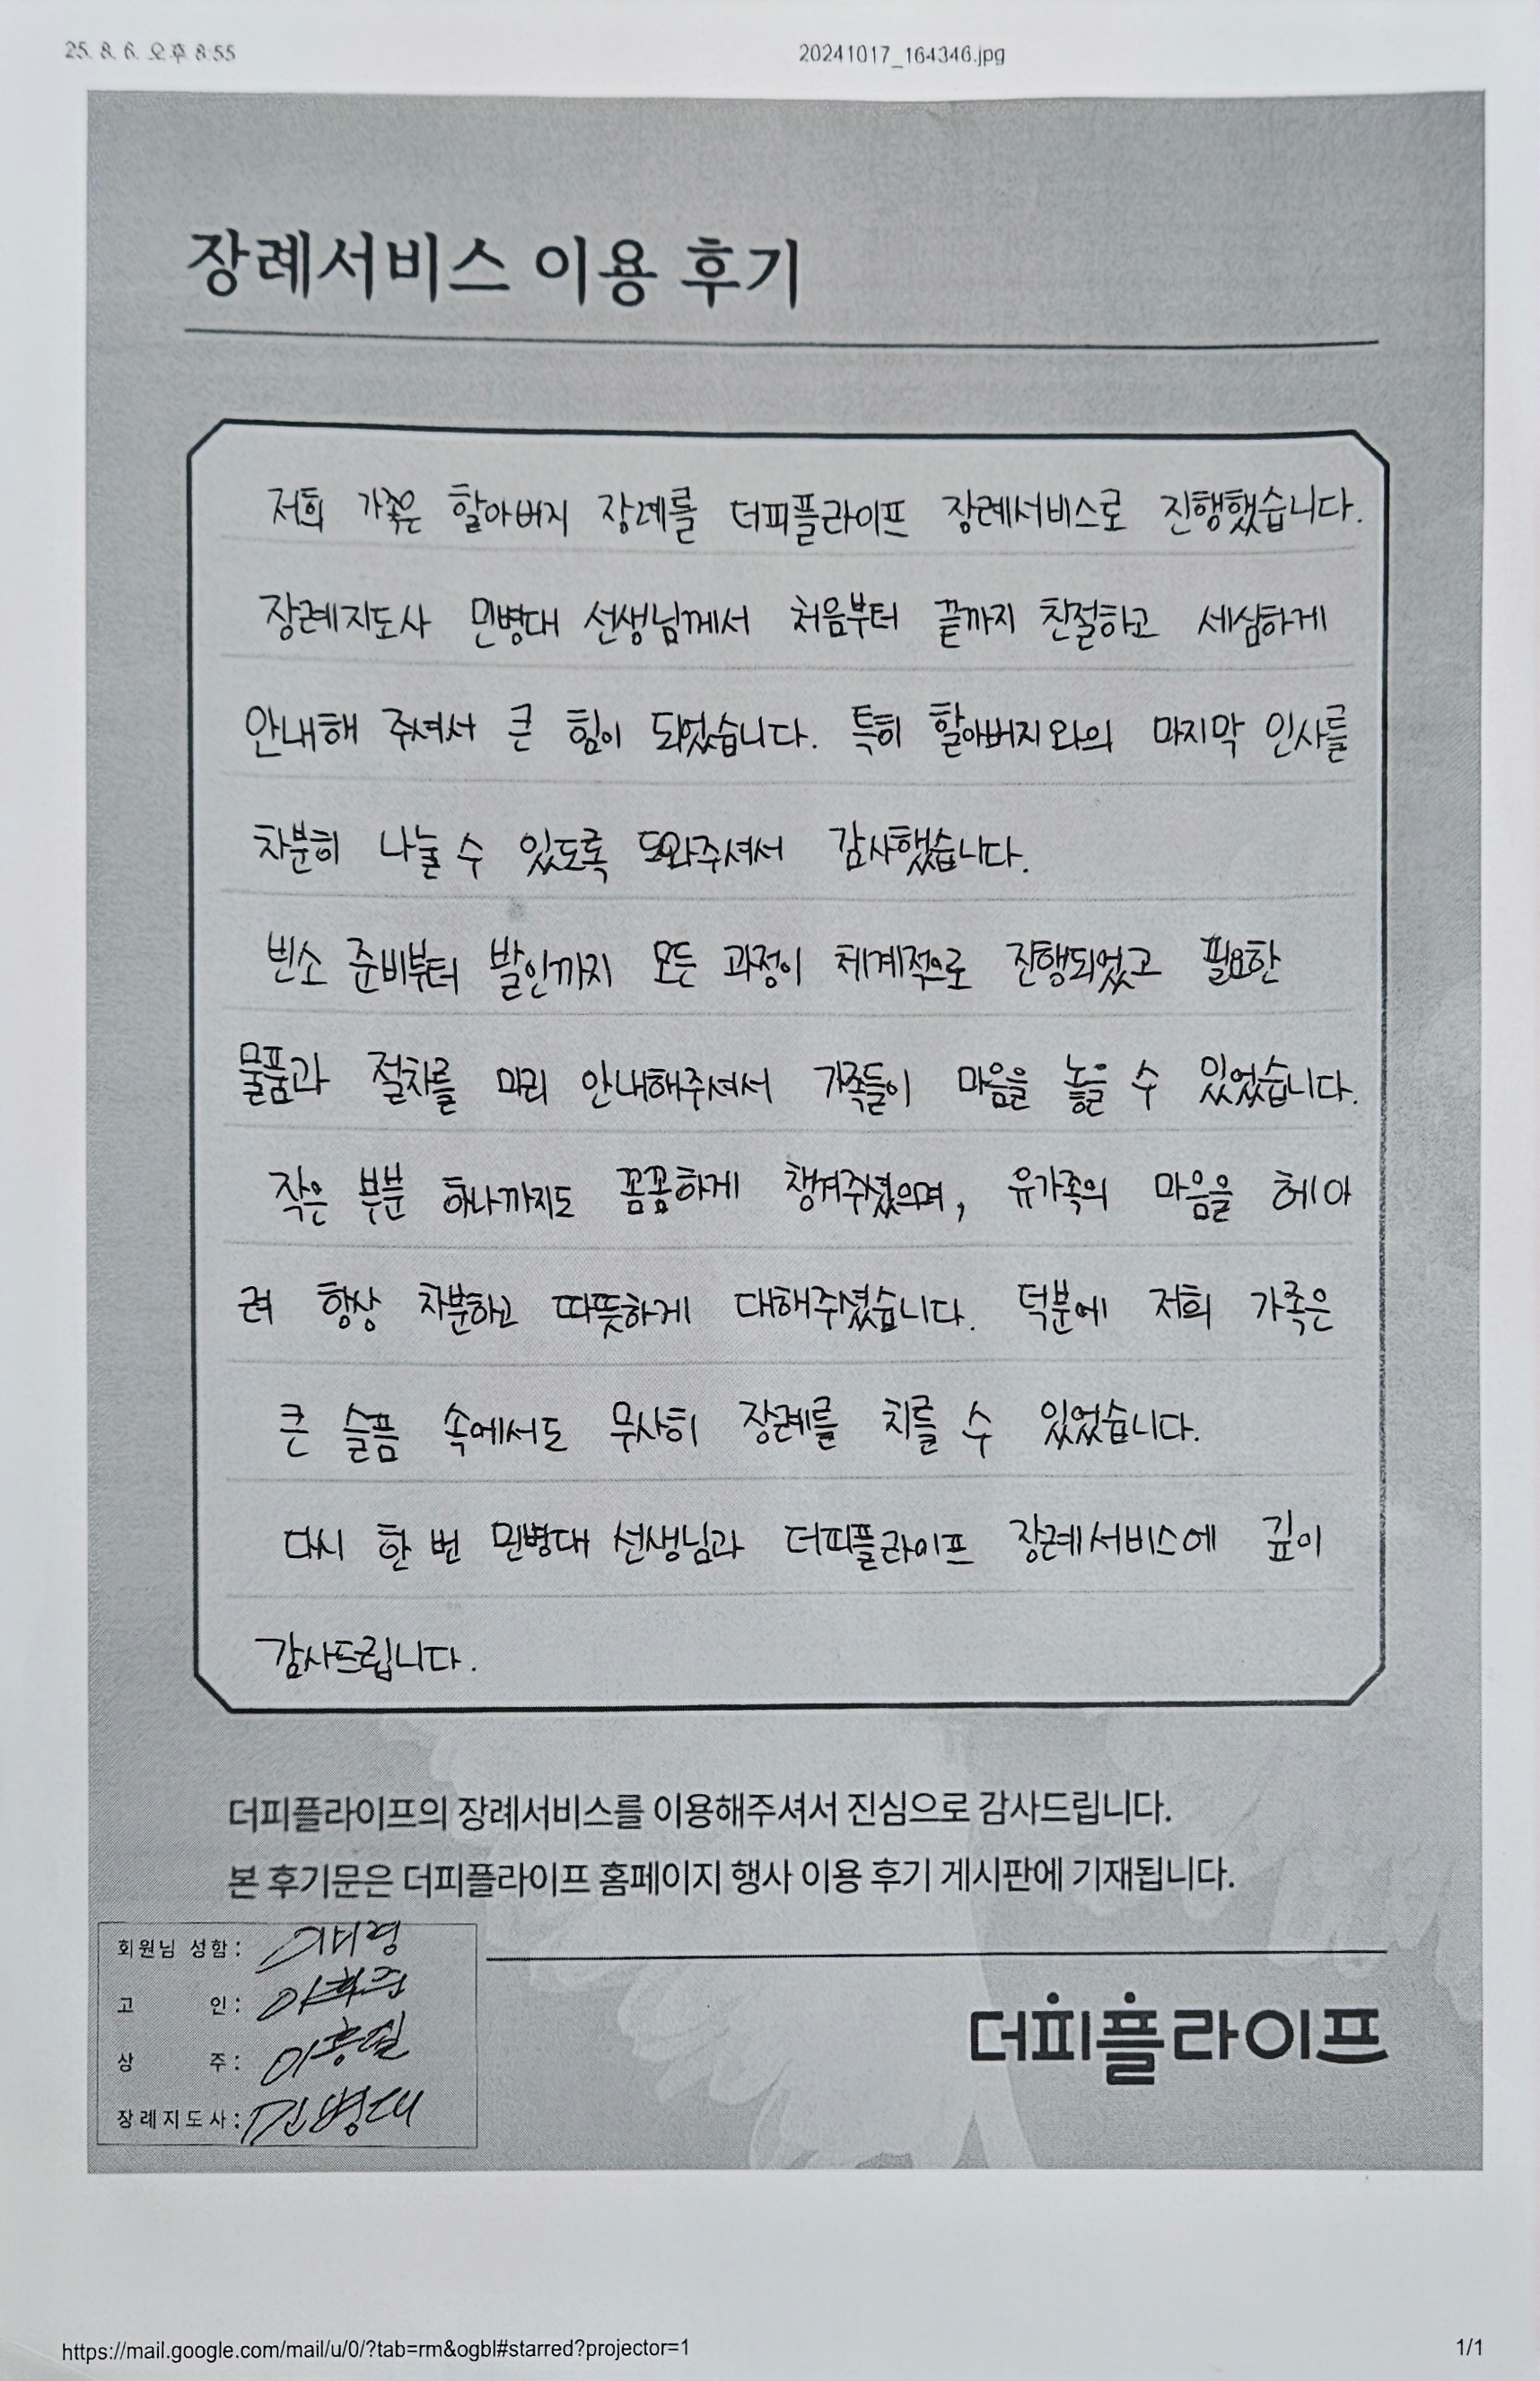 25. 8. 6. 오후 8:55
20241017_164346.jpg
장례서비스 이용 후기
저희 가족은 할아버지 장례를 더피플라이프 장례서비스로 진행했습니다.
장례지도사 민병대 선생님께서 처음부터 끝까지 친절하고 세심하게
안내해 주셔서 큰 힘이 되었습니다. 특히 할아버지와의 마지막 인사를
차분히 나눌 수 있도록 도와주셔서 감사했습니다.
빈소 준비부터 발인까지 모든 과정이 체계적으로 진행되었고 필요한
물품과 절차를 미리 안내해주셔서 가족들이 마음을 놓을 수 있었습니다.
작은 부분 하나까지도 꼼꼼하게 챙겨주셨으며, 유가족의 마음을 헤아
려 항상 차분하고 따뜻하게 대해주셨습니다. 덕분에 저희 가족은
큰 슬픔 속에서도 무사히 장례를 치를 수 있었습니다.
다시 한 번 민병대 선생님과 더피플라이프 장례서비스에 깊이
감사드립니다.
더피플라이프의 장례서비스를 이용해주셔서 진심으로 감사드립니다.
본 후기문은 더피플라이프 홈페이지 행사 이용 후기 게시판에 기재됩니다.
회원님 성함:
고 인:
상 주:
장례지도사: 민병대
더피플라이프
https://mail.google.com/mail/u/0/?tab=rm&ogbl#starred?projector=1
1/1